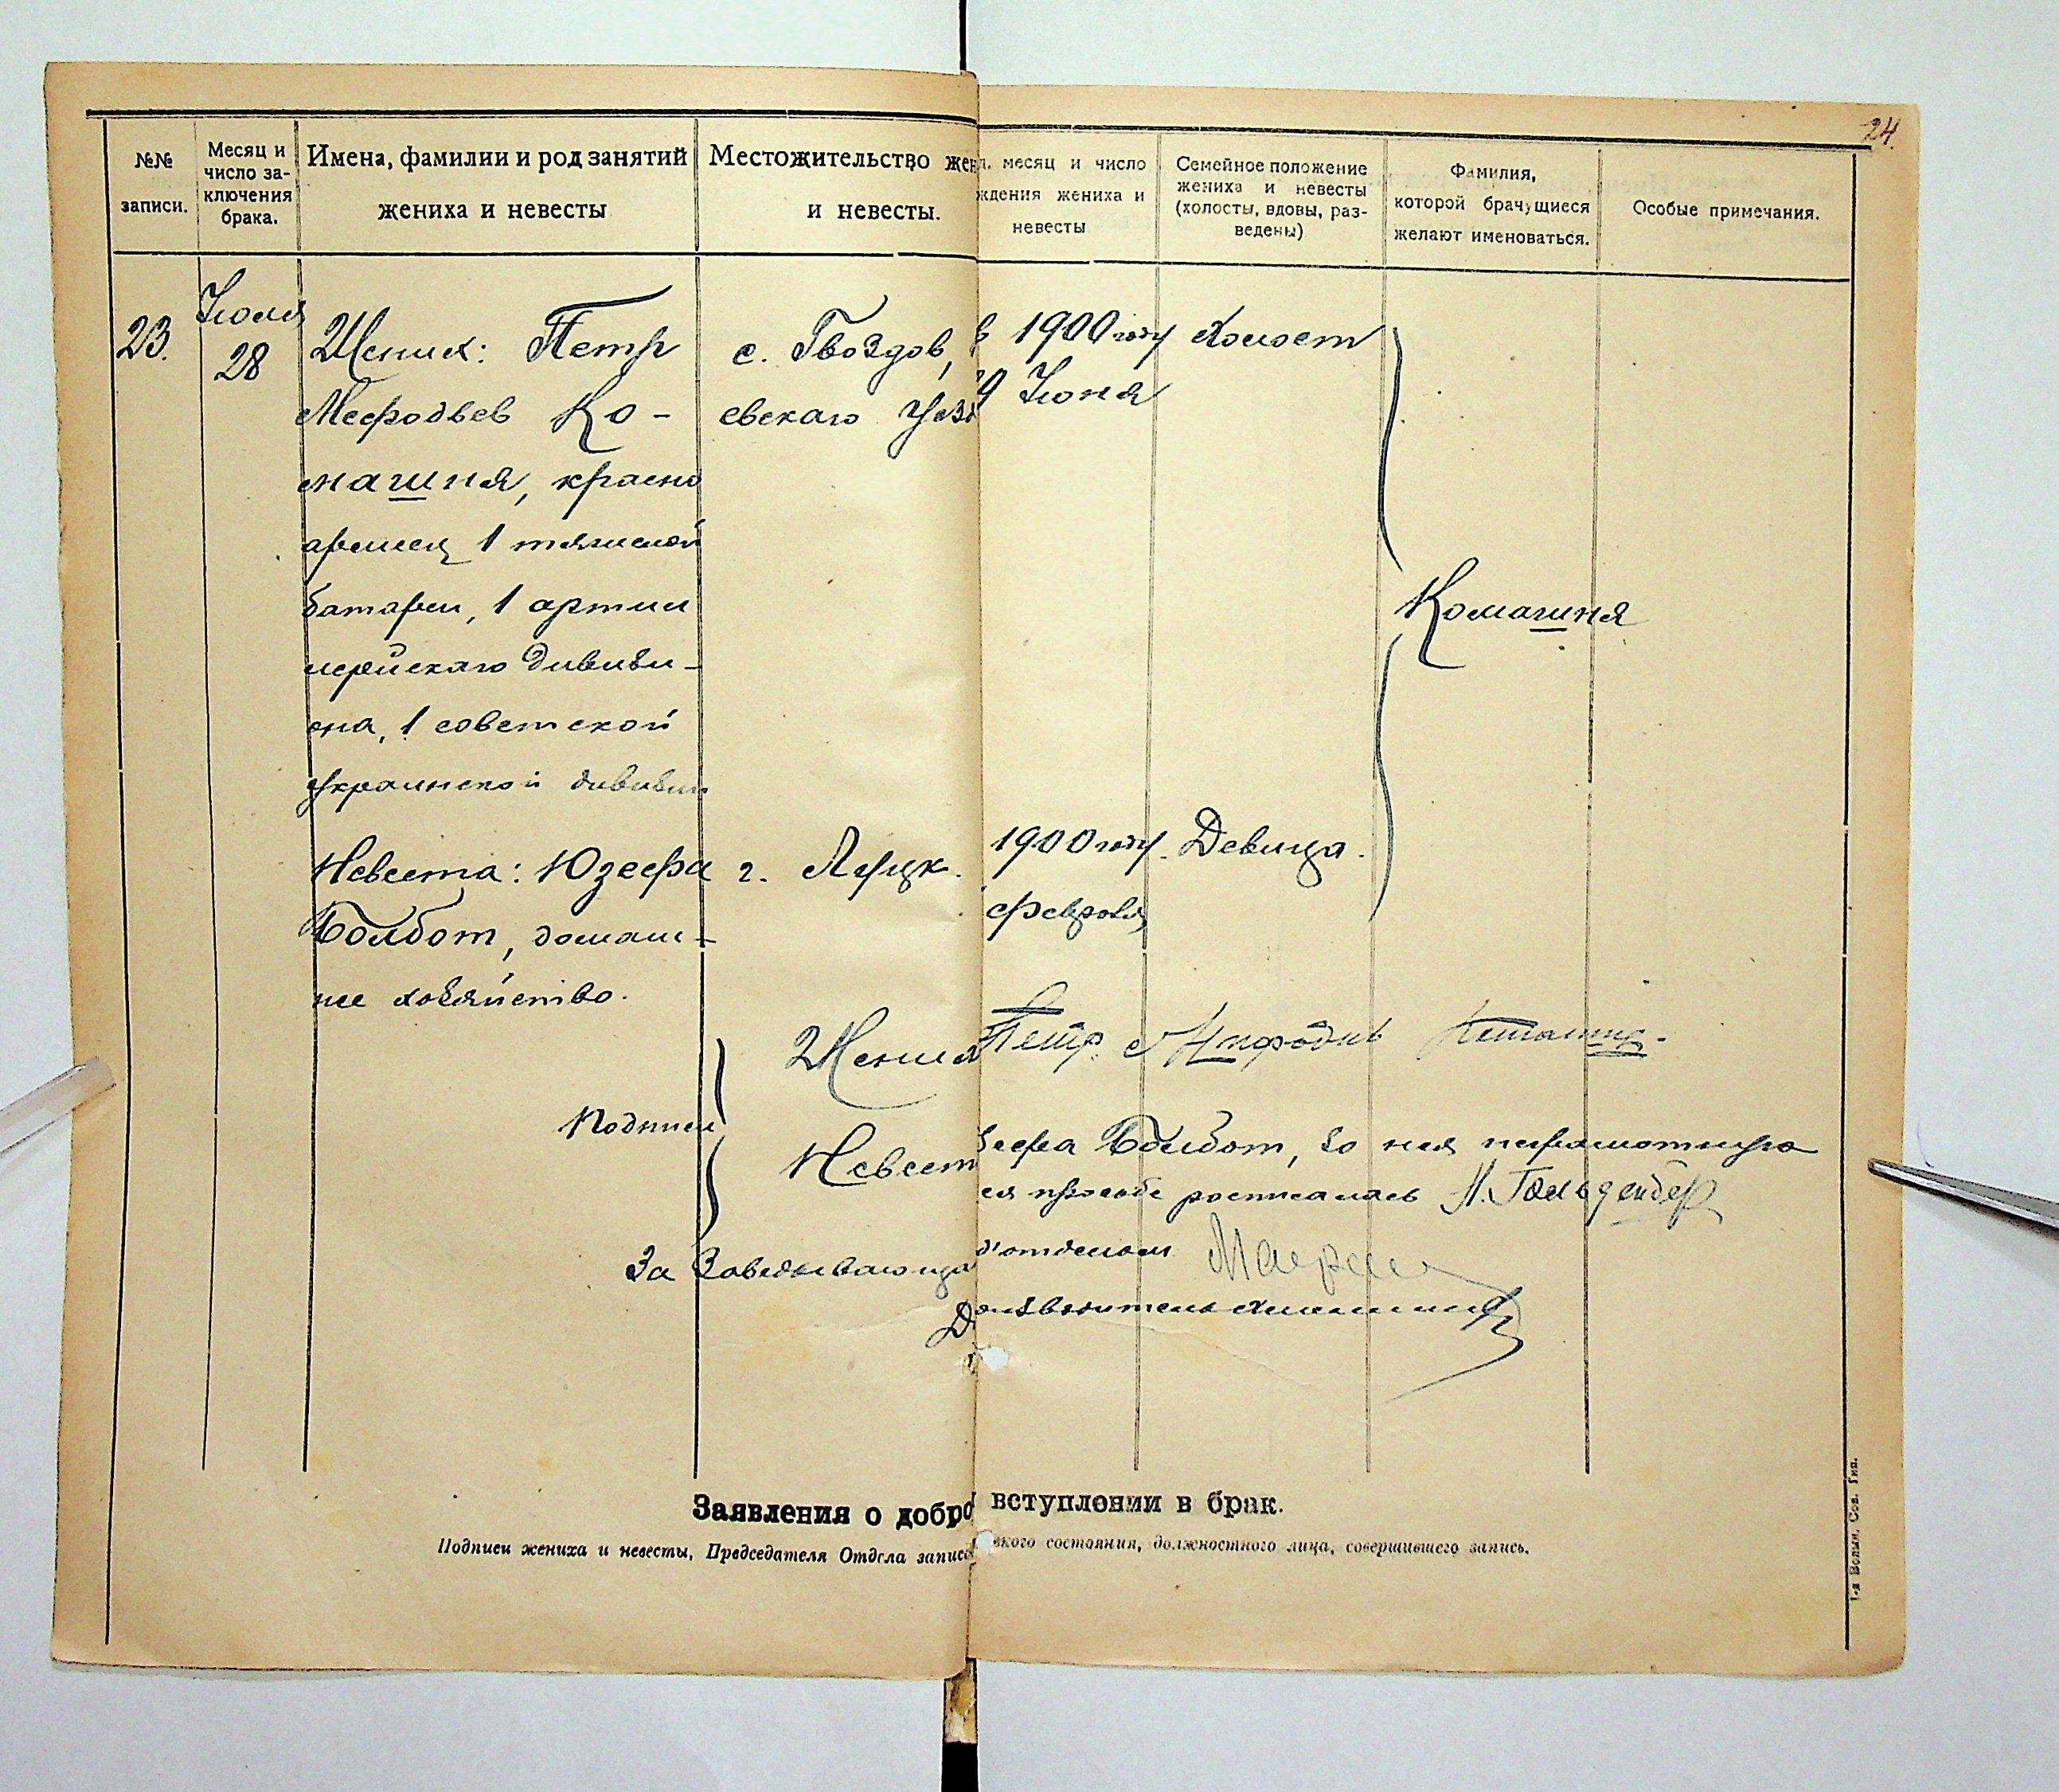 24.
№№ записи.
Месяц и число заключения брака.
Имена, фамилии и род занятий жениха и невесты
Местожительство жен
и невесты.
месяц и число
ждения жениха и
невесты
Семейное положение
жениха и невесты
(холосты, вдовы, раз-
ведены)
Фамилия,
которой брачущиеся
желают именоваться.
Особые примечания.
23.
Июля
28
Жених: Петр
Мефодьев Ко-
машня, красно
армеец 1 тяжелой
батареи, 1 артил
лерийскаго дивизи-
она, 1 советской
украинской дивизии
с. Гвоздов,
евскаго уезд
в 1900 году
9 Июня
Холост
Комашня
Невеста: Юзефа
Болбот, домаш-
нее хозяйство.
г. Луцк.
1900 году.
февраля
Девица.
Подписи
Жених
Петр
Невест
зефа Болбот, за нея неграмотную
ея просьбе росписалась
За Заведывающа
отделом
Делопроизводитель
Заявления о добро
вступлении в брак.
Подписи жениха и невесты, Председателя Отдела записи
ского состояния, должностного лица, совершившего запись.
1-я Волын. Сов. Тип.